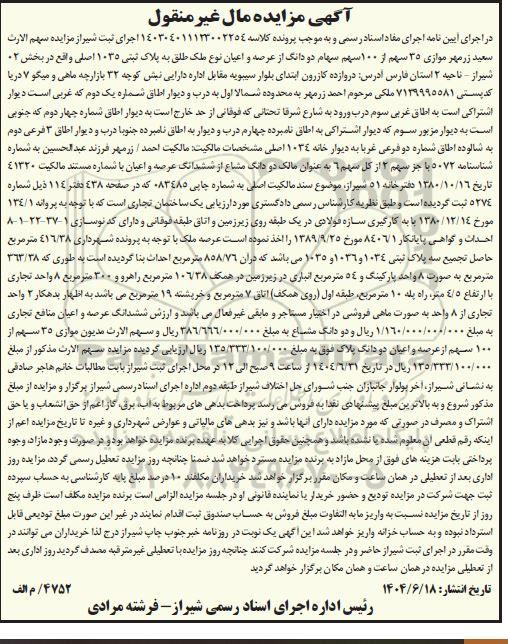 آگهی مزایده مال غیر منقول
در اجرای آیین نامه اجرای مفاد اسناد رسمی و به موجب پرونده کلاسه ۱۴۰۳۰۴۰۱۱۱۲۳۰۰۲۲۵۴ اجرای ثبت شیراز مزایده سهم الارث
سعید زرمهر موازی ۳۵ سهم از ۱۰۰ سهم سهام دو دانگ از عرصه و اعیان نوع ملک طلق به پلاک ثبتی ۱۰۳۵ اصلی واقع در بخش ۰۲
شیراز - ناحیه ۲ استان فارس آدرس: دروازه کازرون ابتدای بلوار سیبویه مقابل اداره دارایی نبش کوچه ۳۲ بازارچه ماهی و میگو ۷ دریا
کدپستی ۷۱۳۹۹۹۵۵۸۱ ملکی مرحوم احمد زرمهر به محدوده شمالا اول به درب و دیوار اطاق شماره یک دوم که غربی است دیوار
اشتراکی است به اطاق غربی سوم درب ورود به شارع شرقا تحتانی که فوقانی از حد خارج است به دیوار اطاق شماره چهار دوم که جنوبی
است به دیوار مزبور سوم که دیوار اشتراکی به اطاق نامبرده چهارم درب و دیوار به اطاق نامبرده جنوبا درب و دیوار اطاق ۳ فرعی دوم
به شالوده اطاق شماره دو فرعی غربا به دیوار خانه ۱۰۳۴ اصلی مشخصات مالکیت: مالکیت احمد / زرمهر فرزند عبدالحسین به شماره
شناسنامه ۵۰۷۲ با جز سهم ۲ از کل سهم ۶ به عنوان مالک دو دانگ مشاع از ششدانگ عرصه و اعیان با شماره مستند مالکیت ۴۱۳۲۰
تاریخ ۱۳۸۰/۱۰/۱۶ دفترخانه ۵۱ شیراز، موضوع سند مالکیت اصلی به شماره چاپی ۰۸۳۴۸۵ که در صفحه ۴۳۸ دفتر ۱۱۴ ذیل شماره
۵۲۷۴ ثبت گردیده است و طبق نظریه کارشناس رسمی دادگستری مورد ارزیابی یک ساختمان تجاری است که با توجه به پروانه ۱۳۴/۱
مورخ ۱۳۸۰/۱۲/۱۴ با به کارگیری سازه فولادی در یک طبقه روی زیرزمین و اتاق طبقه فوقانی و دارای کد نوسازی ۱-۳۷-۲۲-۱-۸
احداث و گواهی پایانکار ۸۴۰۶/۱ مورخ ۱۳۸۹/۹/۲۵ را اخذ نموده است عرصه ملک با توجه به پرونده شهرداری ۴۱۶/۳۸ مترمربع
حاصل تجمیع سه پلاک ثبتی ۱۰۳۴ و ۱۰۳۶ و ۱۰۳۵ می باشد که در آن ۸۵۸/۷۶ مترمربع احداث بنا گردیده است به طوری که ۳۶۳/۳۸
مترمربع به صورت ۸ واحد پارکینگ و ۵۴ مترمربع انباری در زیرزمین در همکف ۱۰۶/۳۸ مترمربع راهرو و ۳۰۰ مترمربع ۸ واحد تجاری
با ارتفاع ۴/۵ متر، راه پله ۱۰ مترمربع، طبقه اول (روی همکف) اتاق ۷ مترمربع و خرپشته ۱۹ مترمربع می باشد به اظهار بدهکار ۲ واحد
تجاری از ۸ واحد به صورت ماهی فروشی در اختیار مستاجر و مابقی غیرفعال می باشد و ارزش ششدانگ عرصه و اعیان منافع تجاری
به مبلغ ۱/۱۶۰/۰۰۰/۰۰۰/۰۰۰ ریال و دو دانگ مشاع به مبلغ ۳۸۶/۶۶۶/۰۰۰/۰۰۰ ریال و سهم الارث مدیون موازی ۳۵ سهم از
۱۰۰ سهم از عرصه و اعیان دو دانگ پلاک فوق به مبلغ ۱۳۵/۳۳۳/۱۰۰/۰۰۰ ریال ارزیابی گردیده مزایده سهم الارث مذکور از مبلغ
۱۳۵/۳۳۳/۱۰۰/۰۰۰ ریال در تاریخ ۱۴۰۴/۶/۳۱ از ساعت ۹ صبح الی ۱۲ در محل اجرای ثبت شیراز بابت مطالبات خانم هاجر صادقی
به نشانی شیراز، آخر پولوار جانبازان جنب شورای حل اختلاف شیراز طبقه دوم اداره اجرای اسناد رسمی شیراز برگزار و مزایده از مبلغ
مذکور شروع و به بالاترین مبلغ پیشنهادی نقدا به فروش می رسد پرداخت بدهی های مربوط به آب، برق، گاز اعم از حق انشعاب و یا حق
اشتراک و مصرف در صورتی که مورد مزایده دارای آنها باشد و نیز بدهی های مالیاتی و عوارض شهرداری و غیره تا تاریخ مزایده اعم از
اینکه رقم قطعی آن معلوم شده یا نشده باشد و همچنین حقوق اجرایی کلا به عهده برنده مزایده خواهد بود و در صورت وجود مازاد وجوه
پرداختی بابت هزینه های فوق از محل مازاد به برنده مزایده مسترد خواهد شد ضمنا چنانچه روز مزایده تعطیل رسمی گردد، مزایده روز
اداری بعد از تعطیلی در همان ساعت و مکان مقرر برگزار خواهد شد خریداران مکلفند ۱۰ درصد مبلغ پایه کارشناسی به حساب سپرده
ثبت جهت شرکت در مزایده تودیع و حضور خریدار یا نماینده قانونی او در جلسه مزایده الزامی است برنده مزایده مکلف است ظرف پنج
روز از تاریخ مزایده نسبت به واریز مابه التفاوت مبلغ فروش به حساب صندوق ثبت اقدام نمایند در غیر این صورت مبلغ تودیعی قابل
استرداد نبوده و به حساب خزانه واریز خواهد شد این آگهی یک نوبت در روزنامه خبر جنوب چاپ شیراز درج لذا خریداران می توانند در
وقت مقرر در اجرای ثبت شیراز حاضر و در جلسه مزایده شرکت کنند چنانچه روز مزایده با تعطیلی غیرمترقبه مصدف گردید روز اداری بعد
از تعطیلی مزایده در همان ساعت و همان مکان برگزار خواهد گردید
تاریخ انتشار: ۱۴۰۴/۶/۱۸
۴۷۵۲/م الف
رئیس اداره اجرای اسناد رسمی شیراز- فرشته مرادی